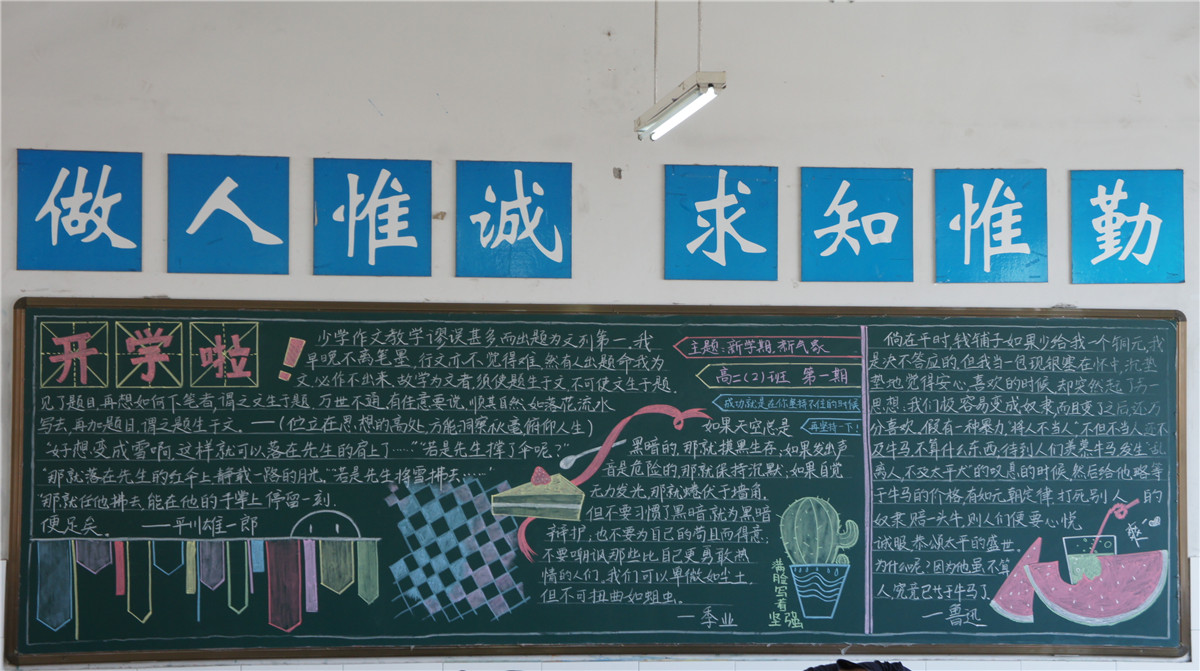 做人惟诚 求知惟勤
开学啦!
少学作文教学谬误甚多而出题为文列第一,我
早晚不离笔墨,行文亦不觉得难,然有人出题命我为
文,必作不出来,故学为文者,须使题生于文,不可使文生于题.
见了题目,再想如何下笔者,谓之文生于题,万世不通,有任意要说,顺其自然,如落花流水
写去,再加题目,谓之题生于文.——(位立在思想的高处,方能洞察
俯仰人生)
“好想变成雪啊,这样就可以落在先生的肩上了……”“若是先生撑了伞呢?”
“那就落在先生的红伞上,静载一路的月光.”“若是先生将雪拂去……”
“那就任他拂去,能在他的手掌上停留一刻,
便足矣. ——平川雄一郎
主题:新学期,新气象
高二(2)班 第一期
成功就是在你坚持不住的时候
再坚持一下!
如果天空总是
黑暗的,那就摸黑生存;如果发出声
音是危险的,那就保持沉默;如果自觉
无力发光,那就蜷伏于墙角.
但不要习惯了黑暗就为黑暗
辩护;也不要为自己的苟且而得意;
不要嘲讽那些比自己更勇敢热
情的人们.我们可以卑微如尘土,
但不可扭曲如蛆虫.
——季业
满脸写着
坚强
倘在平时,钱铺子如果少给我一个铜元,我
是决不答应的.但我当一包现银塞在怀中,沉垫
垫地觉得安心,喜欢的时候,却突然起了另一
思想:我们极容易变成奴隶,而且变了之后,还万
分喜欢.假有一种暴力,“将人不当人”,不但不当人,还不
及牛马,不算什么东西;待到人们羡慕牛马,发生“乱
离人,不及太平犬”的叹息的时候,然后给他略等
于牛马的价格,有如元朝定律,打死别人的
奴隶,赔一头牛,则人们便要心悦
诚服,恭颂太平的盛世.
为什么呢?因为他虽不算
人,究竟已等于牛马了.
——鲁迅
爽~